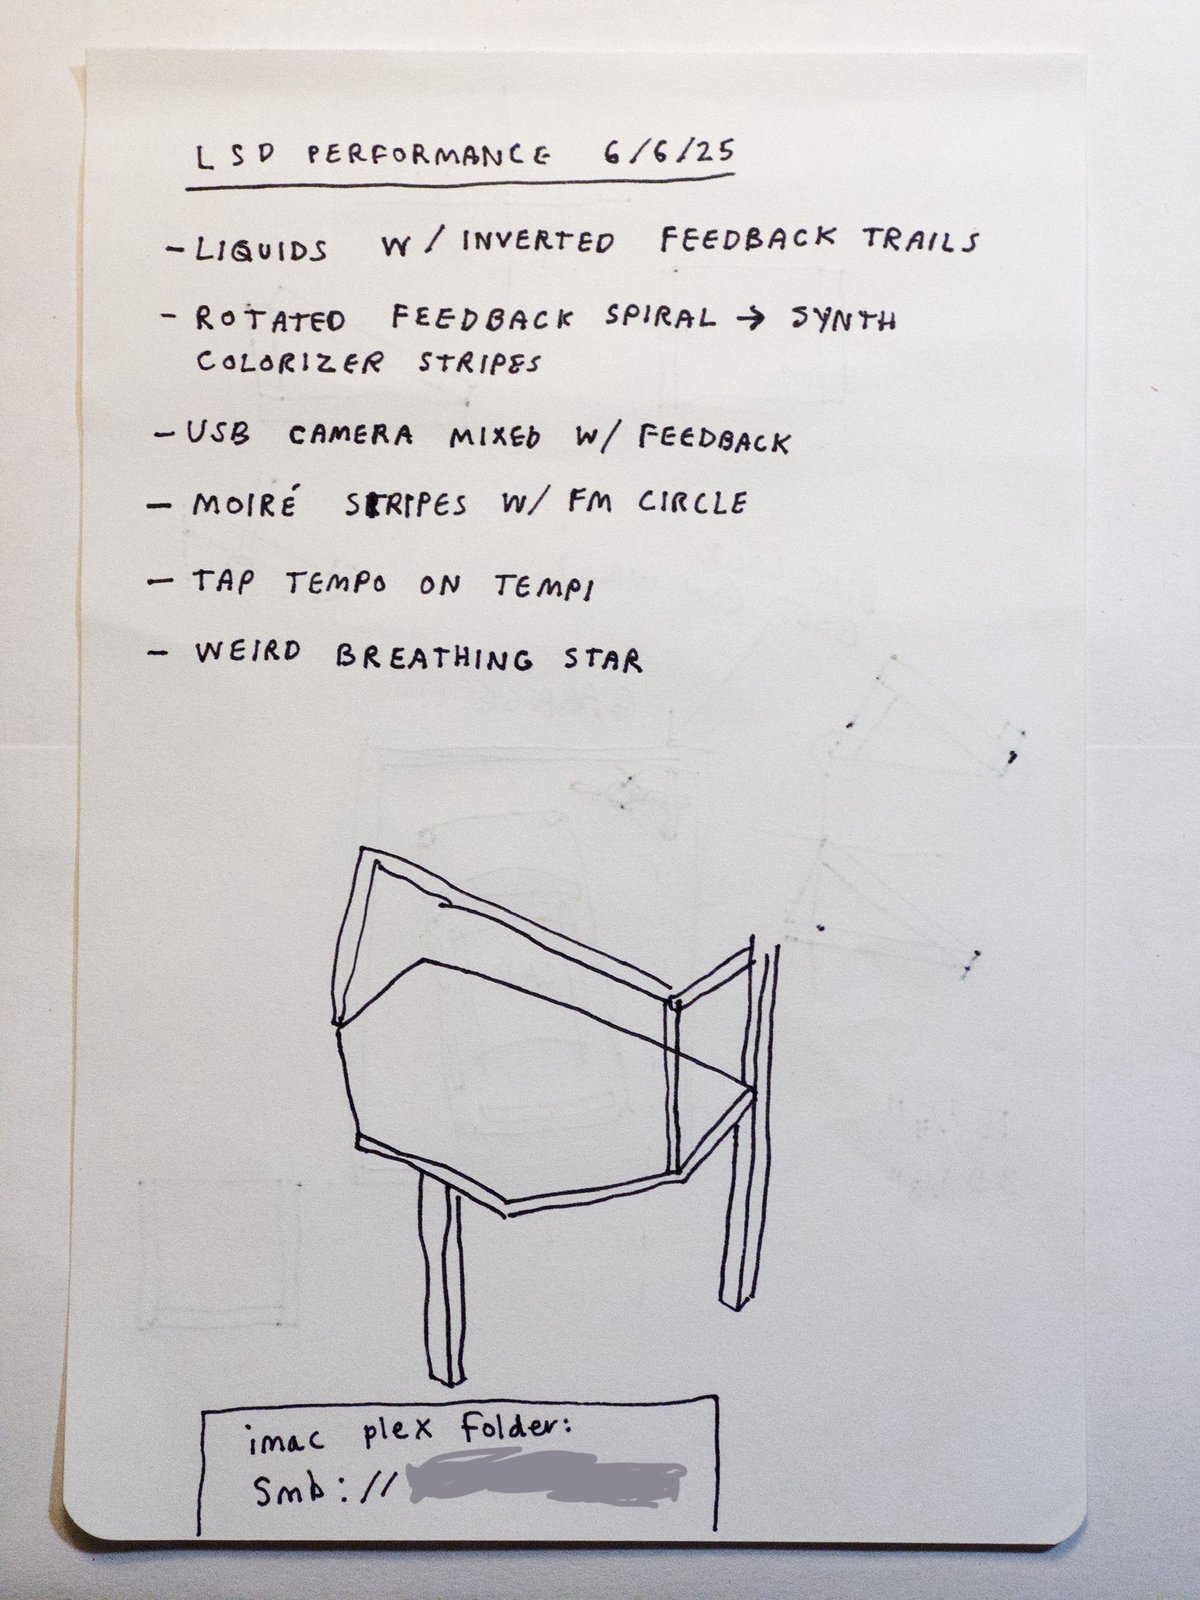 LSD PERFORMANCE 6/6/25
- LIQUIDS W/ INVERTED FEEDBACK TRAILS
- ROTATED FEEDBACK SPIRAL → SYNTH
COLORIZER STRIPES
- USB CAMERA MIXED W/ FEEDBACK
- MOIRÉ STRIPES W/ FM CIRCLE
- TAP TEMPO ON TEMPI
- WEIRD BREATHING STAR
imac plex folder:
Smb://